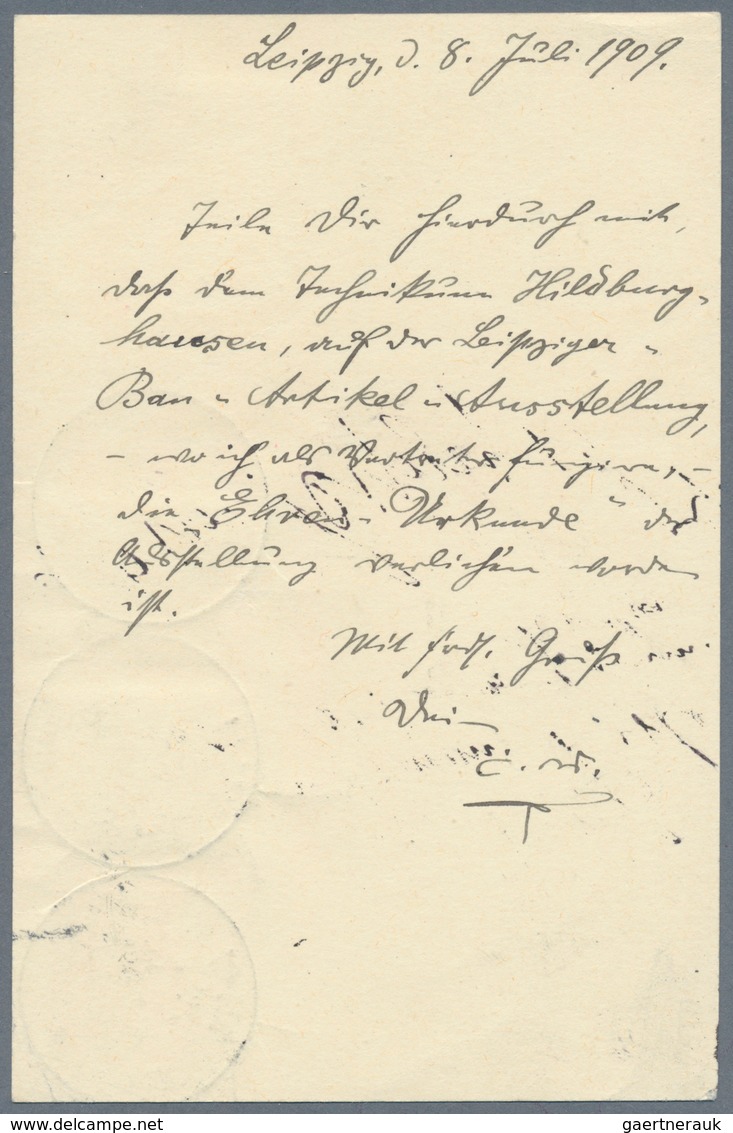 Leipzig, d. 8. Juli 1909.
Teile Dir hierdurch mit,
daß dem Technikum Hildburg-
hausen, auf der Leipziger-
Bau-Artikel-Ausstellung,
- wo ich als Vertreter fungire, -
die "Ehren-Urkunde" der
Ausstellung verliehen worden
ist.
Mit frdl. Gruß
Dein
delcampe.net
gaertnerauk